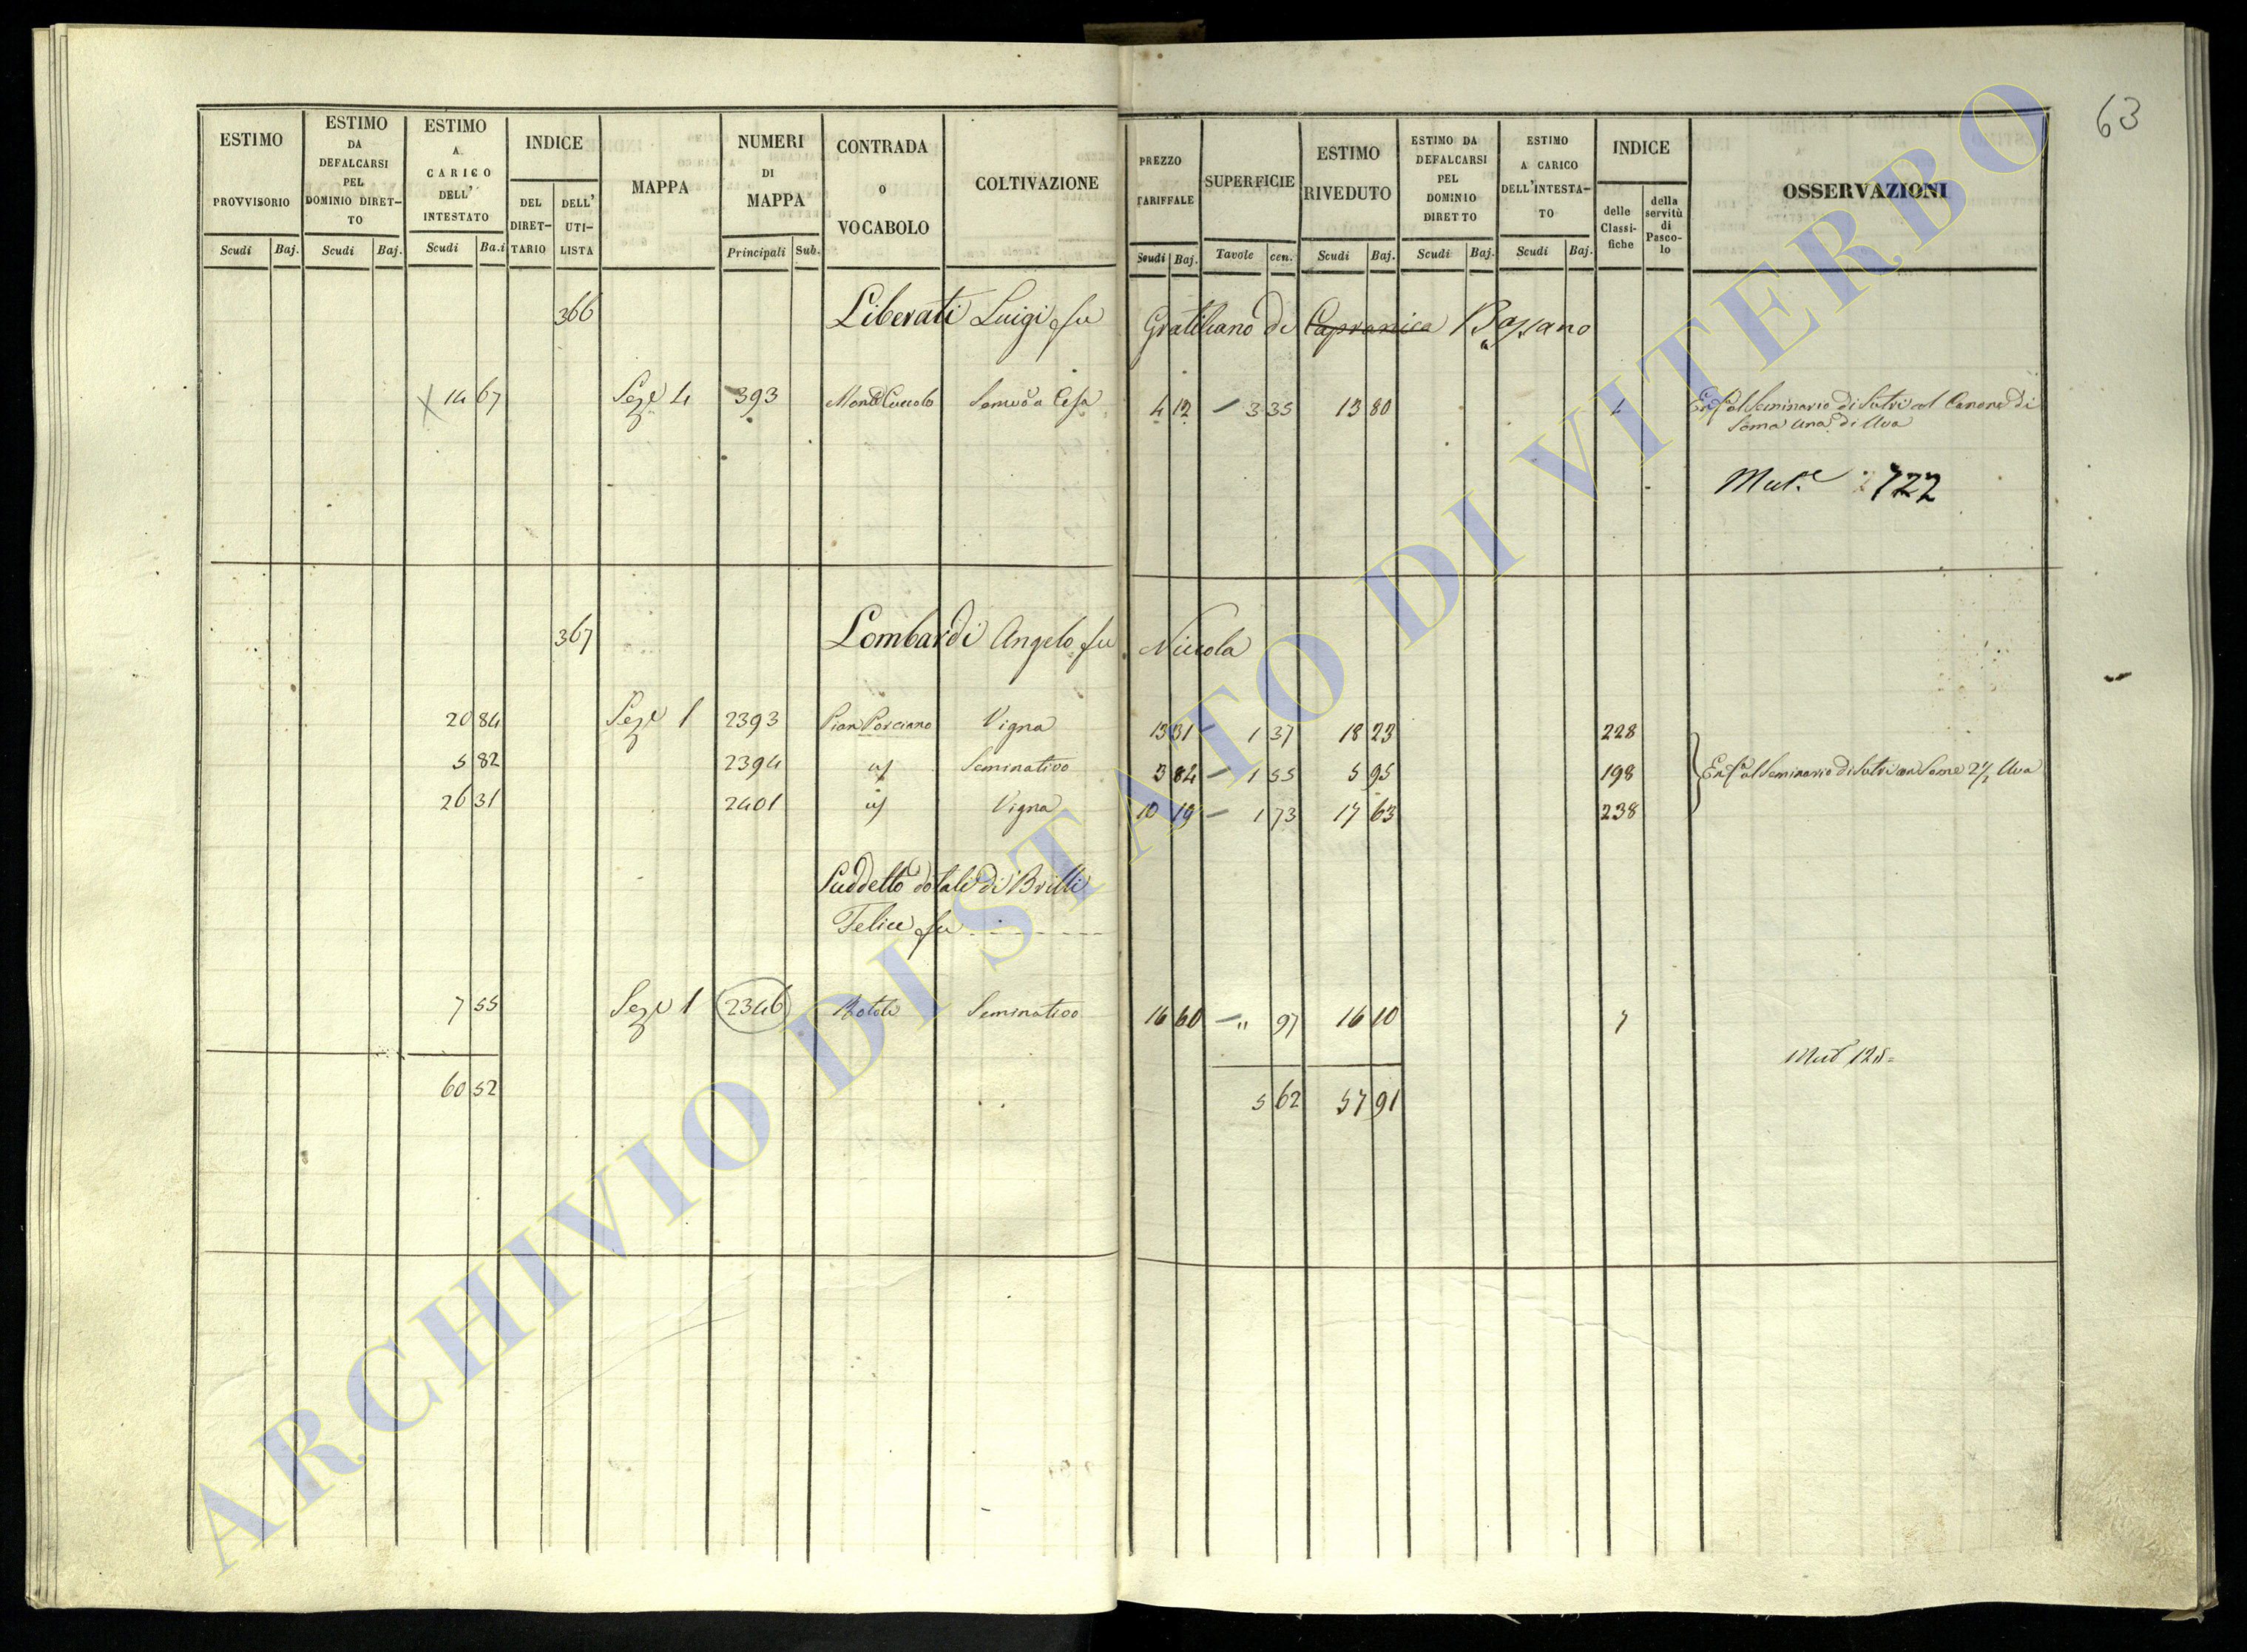 63
ESTIMO PROVVISORIO
Scudi Baj.
ESTIMO DA DEFALCARSI PEL DOMINIO DIRET-TO
Scudi Baj.
ESTIMO A CARICO DELL' INTESTATO
Scudi Baj
INDICE
DEL DIRET-TARIO
DELL' UTI-LISTA
MAPPA
NUMERI DI MAPPA
Principali Sub.
CONTRADA o VOCABOLO
COLTIVAZIONE
PREZZO TARIFFALE
Scudi Baj.
SUPERFICIE
Tavole cen.
ESTIMO RIVEDUTO
Scudi Baj.
ESTIMO DA DEFALCARSI PEL DOMINIO DIRETTO
Scudi Baj.
ESTIMO A CARICO DELL'INTESTA-TO
Scudi Baj.
INDICE
delle Classi-fiche
della servitù di Pasco-lo
OSSERVAZIONI
366 Liberati Luigi fu Gratiliano di Capranica Bassano
14 67 Seze 4 393 Monte Cuccolo 4 12 3 35 13 80 Enfa al Seminario di Sutri al Canone di
Soma una di Uva
Mute 2722
367 Lombardi Angelo fu Niccola
20 84 Seze 1 2393 Pian Porciano Vigna 13 31 1 37 18 23 228
5 82 2394 Seminativo 3 84 1 55 5 95 198 Enfa al Seminario di Sutri an Some 2 1/2 Uva
26 31 2401 Vigna 10 19 1 73 17 63 238
Suddetto dotale di Brilli
Felice fu
7 55 Seze 1 2346 Seminativo 16 60 " 97 16 10 7
60 52 5 62 57 91
ARCHIVIO DI STATO DI VITERBO